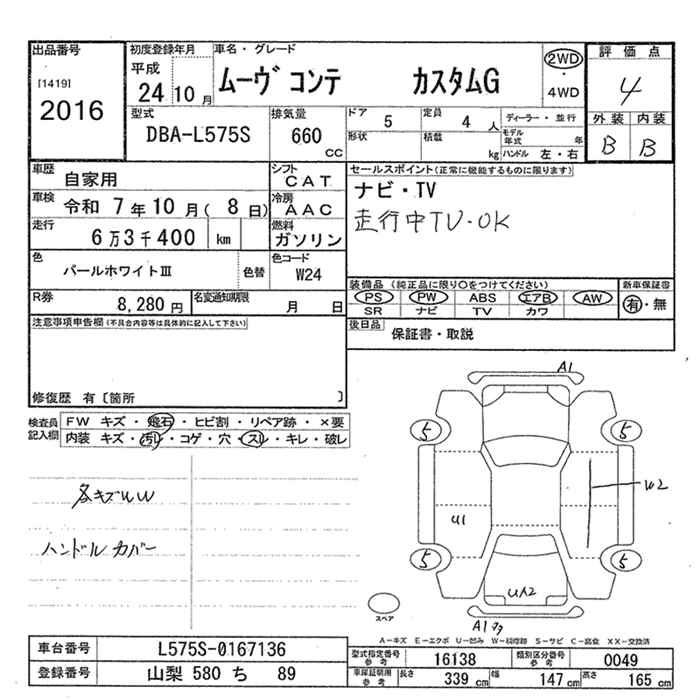 出品番号
[1419]
2016
初度登録年月
平成
24 10 月
車名・グレード
ムーヴ コンテ カスタムG
2WD
・
4WD
評価点
4
外装 内装
B B
型式
DBA-L575S
排気量
660
CC
ドア
5
定員
4 人
形状
積載
kg
ディーラー・並行
モデル年式 年
ハンドル 左・右
車歴
自家用
車検
令和 7 年 10 月( 8 日)
走行
6 万 3 千 400 km
シフト
CAT
冷房
AAC
燃料
ガソリン
色
パールホワイトⅢ
色替
色コード
W24
R券
8,280 円
名変通知期限
月 日
セールスポイント(正常に機能するものに限ります)
ナビ・TV
走行中TV・OK
装備品 (純正品に限り○をつけてください)
PS PW ABS エアB AW
SR ナビ TV カワ
新車保証書
有・無
後日品
保証書・取説
注意事項申告欄(不具合内容等は具体的に記入して下さい)
修復歴 有〔箇所 〕
検査員
記入欄
FW キズ・飛石・ヒビ割・リペア跡・×要
内装 キズ・汚レ・コゲ・穴・スレ・キレ・破レ
各キズWU
ハンドル カバー
A1
5 5
W2
U1
5 5
UA2
スペア
A-キズ E-エクボ U-凹み W-補修跡 S-サビ C-腐食 XX-交換済
車台番号
L575S-0167136
登録番号
山梨 580 ち 89
型式指定番号
参考
16138
類別区分番号
参考
0049
車庫証明用
参考
長さ
339 cm
幅
147 cm
高さ
165 cm